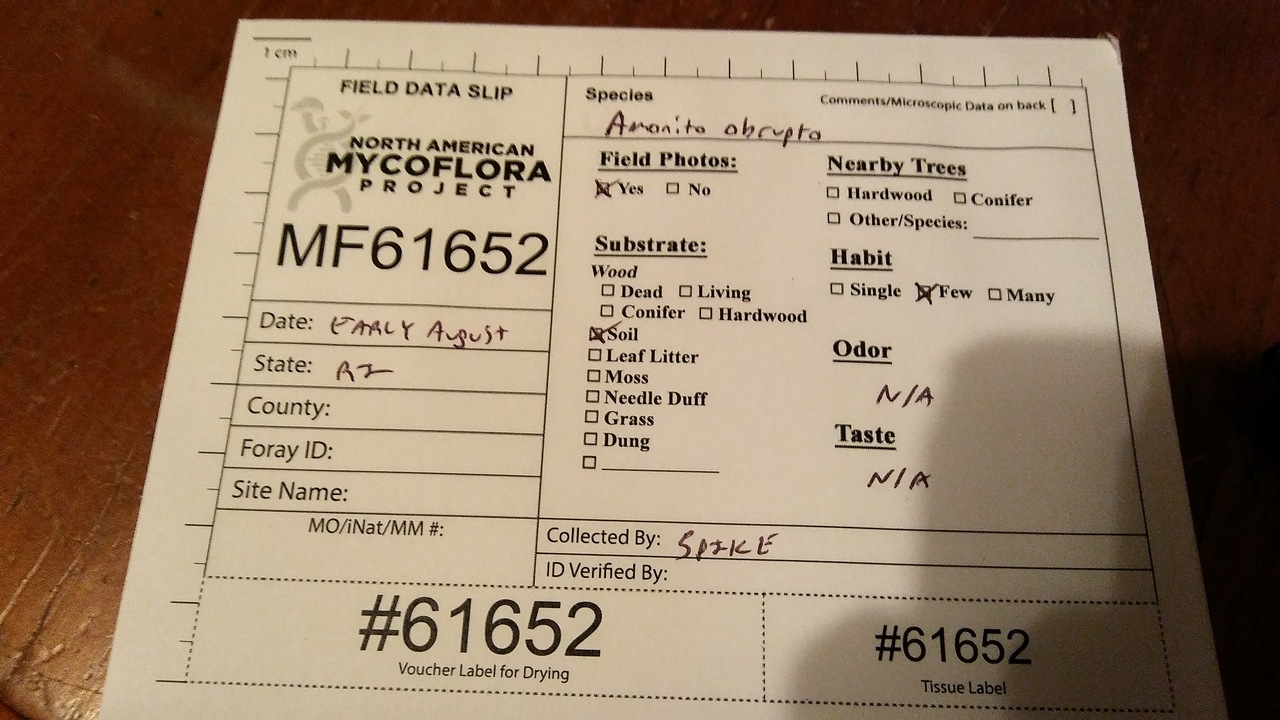 1 cm
FIELD DATA SLIP
NORTH AMERICAN
MYCOFLORA
PROJECT
MF61652
Date: EARLY August
State: RI
County:
Foray ID:
Site Name:
MO/iNat/MM #:
Species
Comments/Microscopic Data on back [ ]
Amanita abrupta
Field Photos:
☒ Yes ☐ No
Substrate:
Wood
☐ Dead ☐ Living
☐ Conifer ☐ Hardwood
☒ Soil
☐ Leaf Litter
☐ Moss
☐ Needle Duff
☐ Grass
☐ Dung
☐
Nearby Trees
☐ Hardwood ☐ Conifer
☐ Other/Species:
Habit
☐ Single ☒ Few ☐ Many
Odor
N/A
Taste
N/A
Collected By: SPIKE
ID Verified By:
#61652
Voucher Label for Drying
#61652
Tissue Label